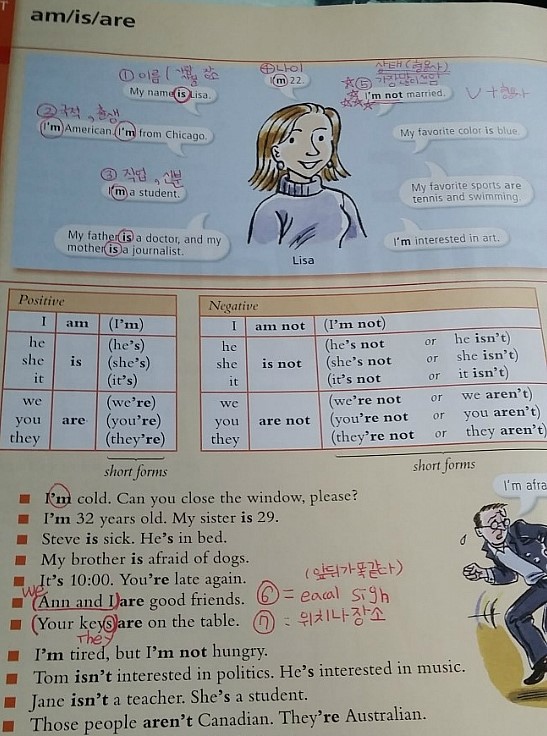 am/is/are
① 이름
④ 나이
상태(형용사)
⑤
My name is Lisa.
I'm 22.
I'm not married.
V + 형용사
② 국적, 출생
I'm American. I'm from Chicago.
My favorite color is blue.
③ 직업, 신분
I'm a student.
My favorite sports are
tennis and swimming.
My father is a doctor, and my
mother is a journalist.
I'm interested in art.
Lisa
Positive
I am (I'm)
he (he's)
she is (she's)
it (it's)
we (we're)
you are (you're)
they (they're)
short forms
Negative
I am not (I'm not)
he (he's not or he isn't)
she is not (she's not or she isn't)
it (it's not or it isn't)
we (we're not or we aren't)
you are not (you're not or you aren't)
they (they're not or they aren't)
short forms
I'm afra
I'm cold. Can you close the window, please?
I'm 32 years old. My sister is 29.
Steve is sick. He's in bed.
My brother is afraid of dogs.
It's 10:00. You're late again.
(앞뒤가 똑같다)
We
Ann and I are good friends.
⑥ = eaual sigh
Your keys are on the table.
They
⑦ : 위치나 장소
I'm tired, but I'm not hungry.
Tom isn't interested in politics. He's interested in music.
Jane isn't a teacher. She's a student.
Those people aren't Canadian. They're Australian.